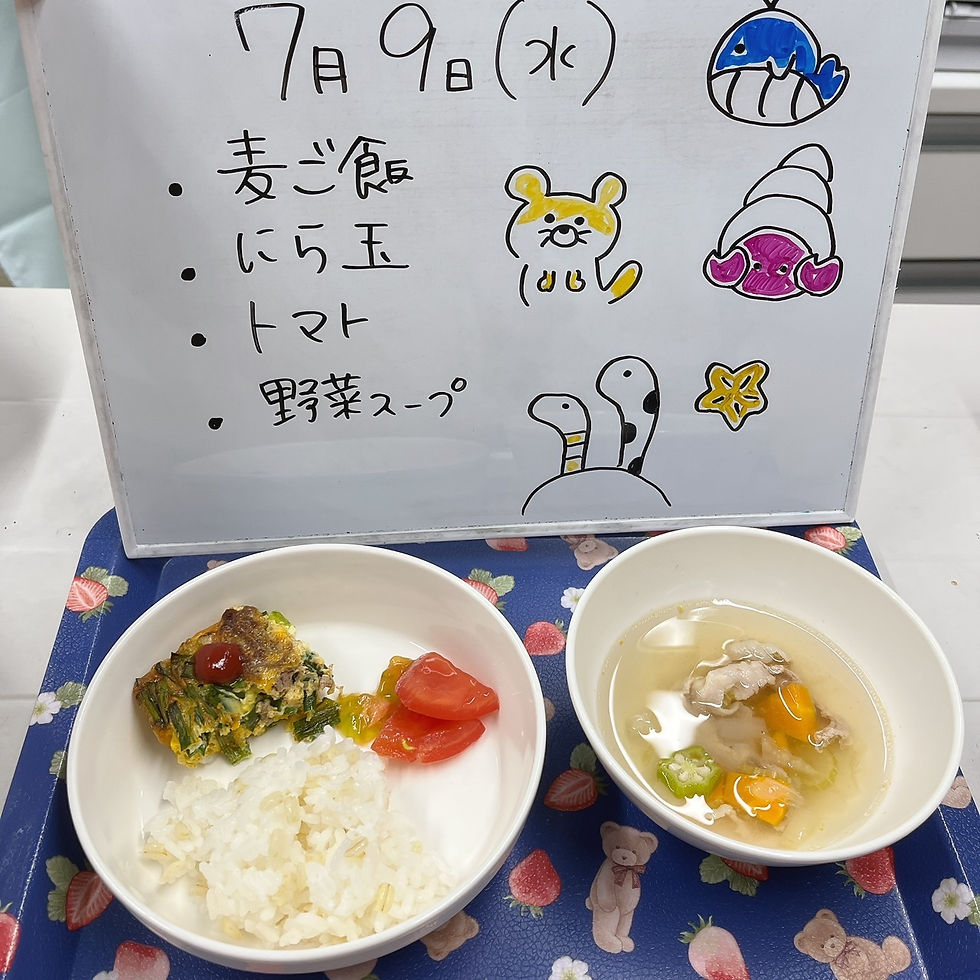 7月9日(水)
・麦ご飯
・にら玉
・トマト
・野菜スープ